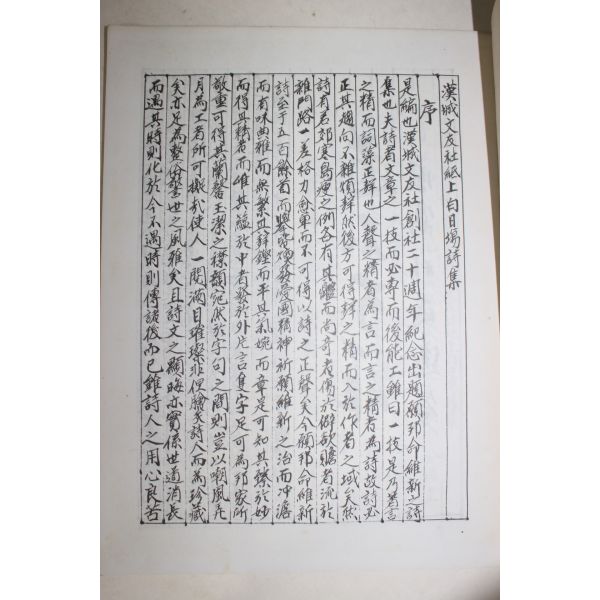 漢城文友社紙上白日場詩集
序
是編也漢城文友社創社二十週年紀念出題願邦命維新之詩
集也夫詩者文章之一技而必專而後能工雖曰一技是乃善言
之精而詞藻正葩也人聲之精者為言而言之精者為詩故詩必
正其趨向不雜煩辭然後方可得辭之精而入於作者之域矣然
詩有若郊寒島瘦之例各有其體而尚奇者傷於僻欲贍者流於
雜門路一差格力愈軍而不可得以詩之正聲矣今願邦命維新
詩至于五百餘首而擧皆煥發愛國精神祈願維新之治而冲澹
而有味典雅而無繁其辭鏗而平其氣婉而章是可知其臻於妙
而得其精者而唯其蘊於中者發於外片言隻字足可為邦家所
敬重可得其蘭馨玉潔之襟韻宛然於字句之間則豈以嘲風弄
月為工者所可擬哉使人一閱滿目璀璨非但膾炙詩人而為珍藏
矣亦足為整俗警世之風雅矣且詩文之顯晦亦實係世道消長
而遇其時則化於今不遇時則傳諸後而已雖詩人之用心良苦